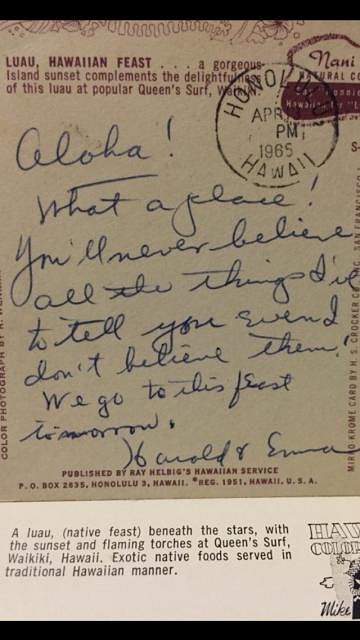 LUAU, HAWAIIAN FEAST . . . a gorgeous
Island sunset complements the delightful
of this luau at popular Queen's Surf, Waikiki
Nani
NATURAL
HONOLULU
APR
PM
1965
HAWAII
Aloha!
What a place!
You'll never believe
all the things I've
to tell you even I
don't believe them!
We go to this feast
tomorrow.
Harold & Emma
COLOR PHOTOGRAPH BY
MIRRO-KROME CARD BY H. S. CROCKER CO.
PUBLISHED BY RAY HELBIG'S HAWAIIAN SERVICE
P. O. BOX 2835, HONOLULU 3, HAWAII. *REG. 1951, HAWAII, U. S. A.
A luau, (native feast) beneath the stars, with
the sunset and flaming torches at Queen's Surf,
Waikiki, Hawaii. Exotic native foods served in
traditional Hawaiian manner.
Mike